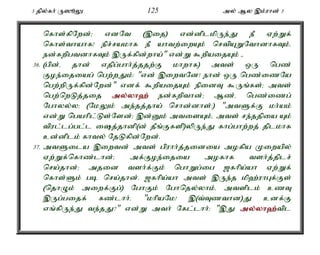 3 தில்கர் ருஸூலு 125 அல் ஆல இம்ரான் 3
கொள்கிறேன்; எனவே (இதை) என்னிடமிருந்து நீ ஏற்றுக்
கொள்வாயாக! நிச்சயமாக நீ யாவற்றையும் செவியுறுவோனாகவும்,
நன்கறிபவனாகவும் இருக்கின்றாய்" என்று கூறியதையும் -
36. (பின், தான் எதிர்பார்த்ததற்கு மாறாக) அவள் ஒரு பெண்
குழந்தையைப் பெற்றதும்: "என் இறைவனே! நான் ஒரு பெண்ணையே
பெற்றிருக்கின்றேன்" எனக் கூறியதையும் நினைவு கூருங்கள்; அவள்
பெற்றெடுத்ததை அல்லாஹ் நன்கறிவான்; ஆண், பெண்ணைப்
போலல்ல; (மேலும் அந்தத்தாய் சொன்னாள்:) "அவளுக்கு மர்யம்
என்று பெயரிட்டுள்ளேன்; இன்னும் அவளையும், அவள் சந்ததியையும்
விரட்டப்பட்ட ஷைத்தானி(ன் தீங்குகளி)லிருந்து காப்பாற்றத் திடமாக
உன்னிடம் காவல் தேடுகின்றேன்.
37. அவளுடைய இறைவன் அவள் பிரார்த்தனையை அழகிய முறையில்
ஏற்றுக்கொண்டான்; அக்குழந்தையை அழகாக வளர்த்திடச்
செய்தான்; அதனை வளர்க்கும் பொறுப்பை ஜகரிய்யா ஏற்றுக்
கொள்ளும் படி செய்தான். ஜகரிய்யா அவள் இருந்த மிஹ்ராபுக்குள்
(தொழும் அறைக்குப்) போகும் போதெல்லாம், அவளிடம் உணவு
இருப்பதைக் கண்டார், "மர்யமே! இ(வ்வுணவான)து உனக்கு
எங்கிருந்து வந்தது?" என்று அவர் கேட்டார்; "இது அல்லாஹ்விட